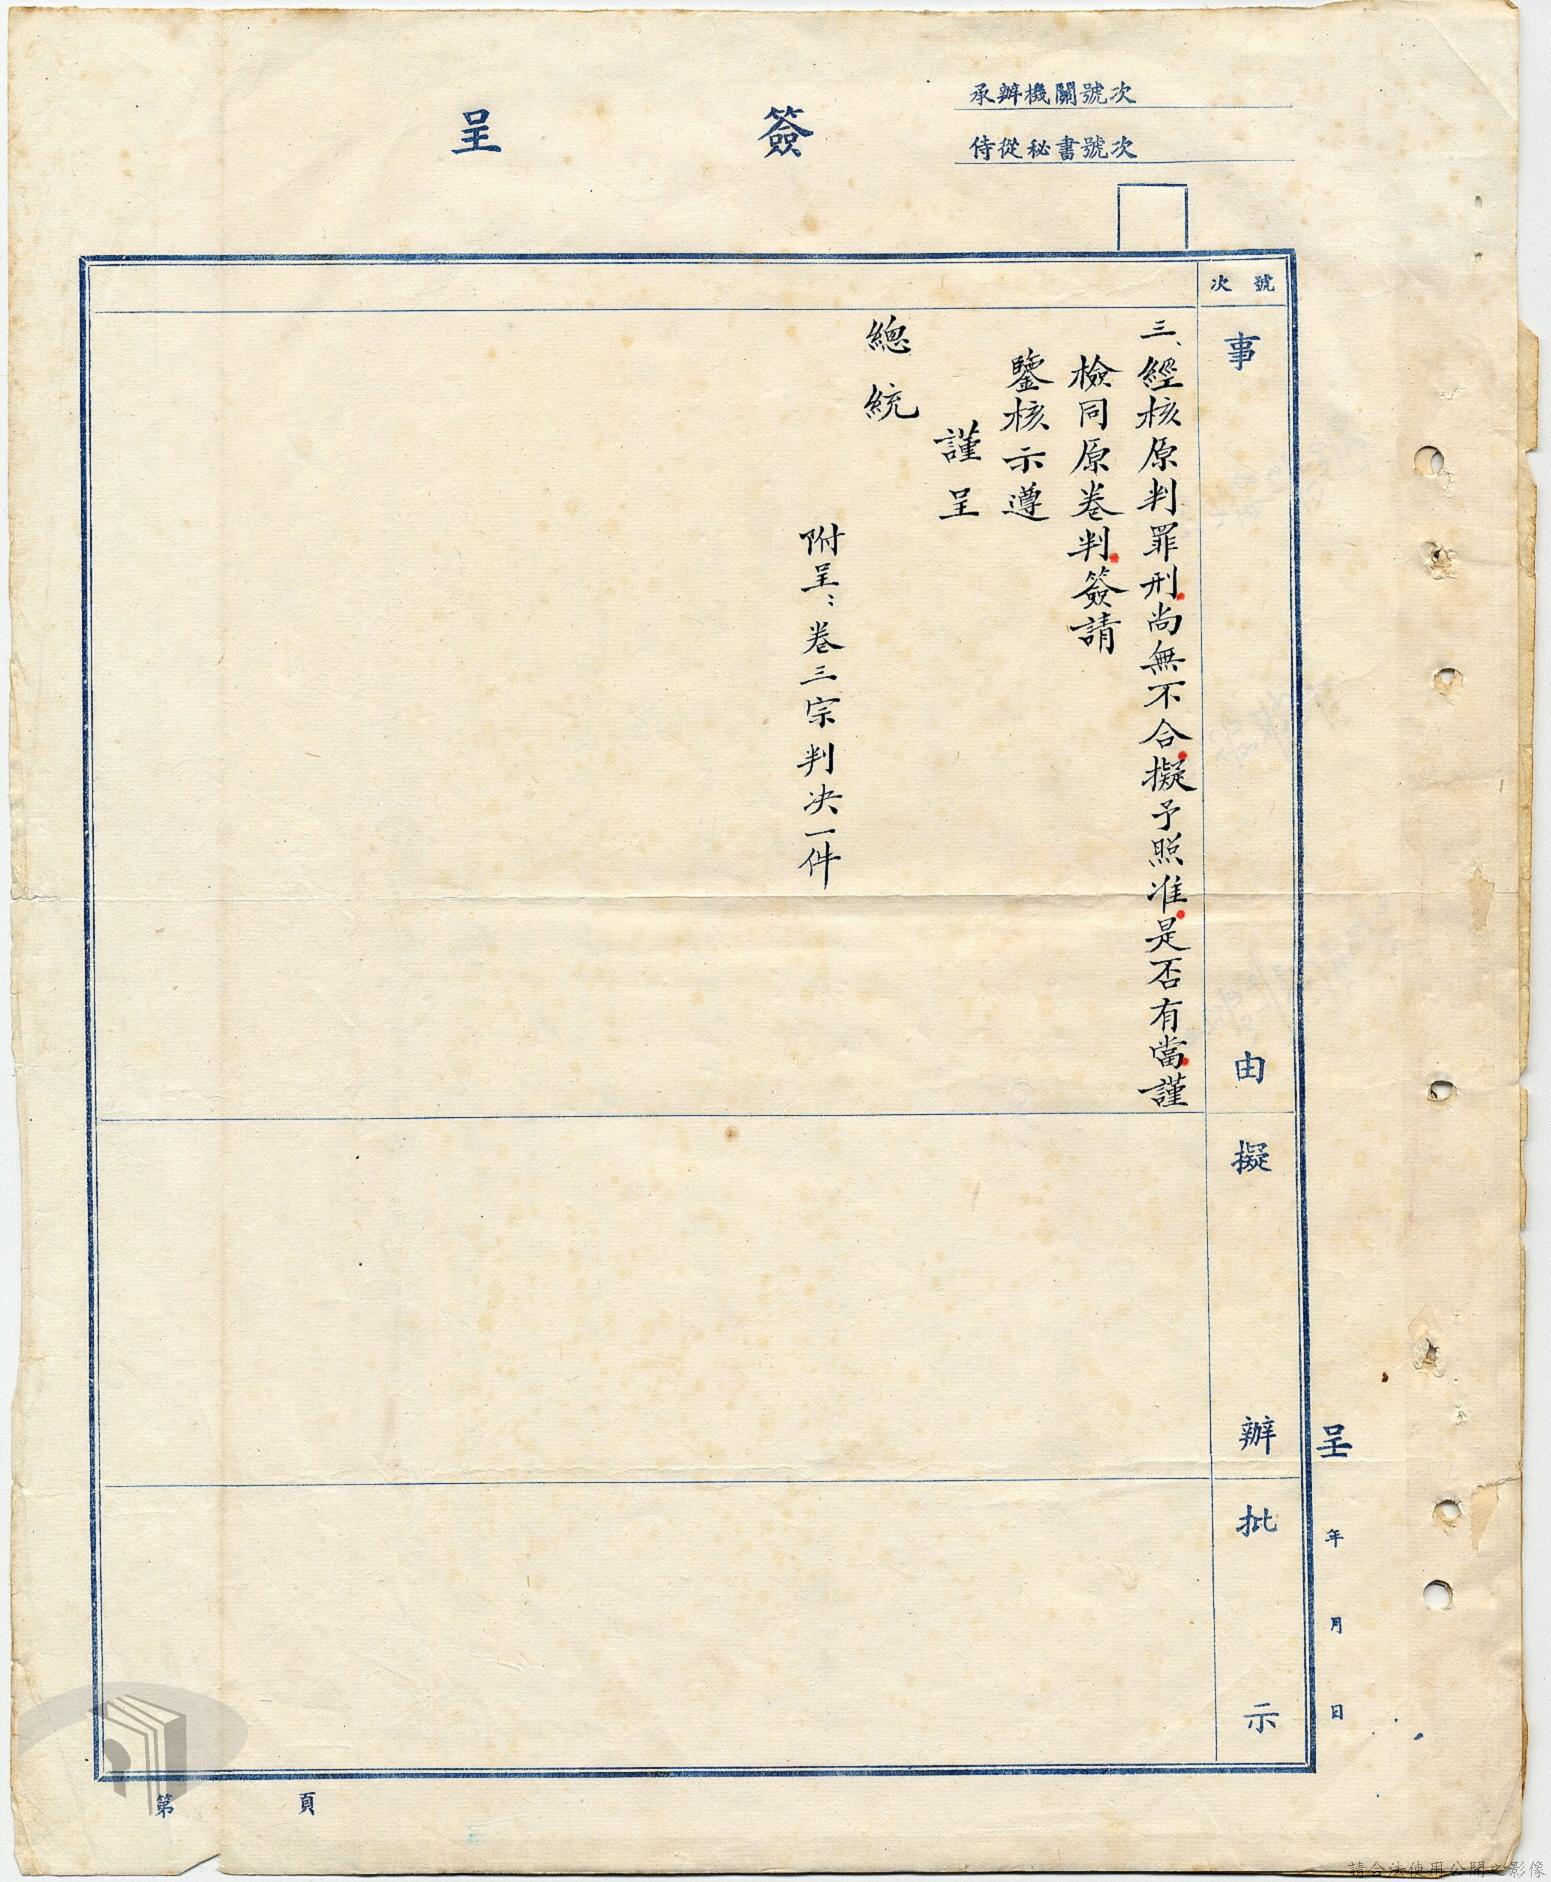 承辦機關號次
侍從秘書號次
簽呈
號次
事由
擬辦
批示
三、經核原判罪刑尚無不合擬予照准是否有當謹
檢同原卷判簽請
鑒核示遵
謹呈
總統
附呈：卷三宗判决一件
呈 年 月 日
第 頁
請合法使用公開之影像